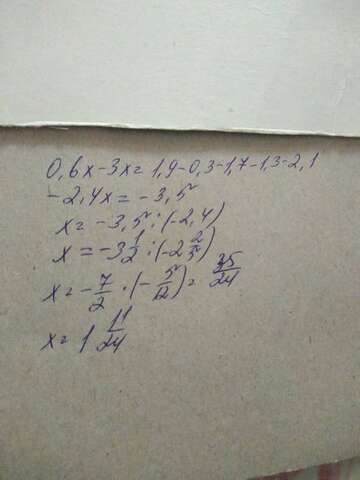 0,6x-3x=1,9-0,3-1,7-1,3-2,1
-2,4x=-3,5
x=-3,5:(-2,4)
x=-3 1/2:(-2 2/5)
x=-7/2·(-5/12)=35/24
x=1 11/24